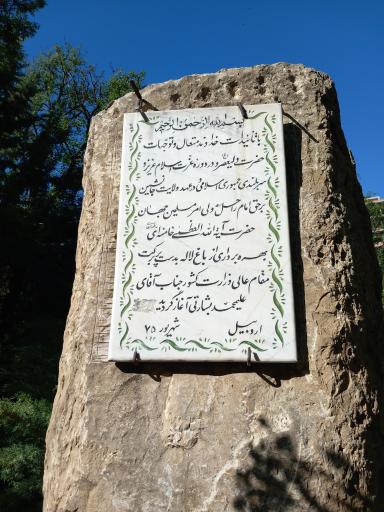 بسم الله الرحمن الرحیم
با تأییدات خداوند متعال و توجهات
حضرت ولیعصر و در دوره عزت اسلام عزیز و
سربلندی جمهوری اسلامی و در عهد ولایت
بر حق امام راحل و ولی امر مسلمین جهان
حضرت آیة الله العظمی خامنه‌ای
بهره برداری از باغ لاله بدست پر برکت
مقام عالی وزارت کشور جناب آقای
علیمحمد بشارتی آغاز گردید
اردبیل شهریور ۷۵